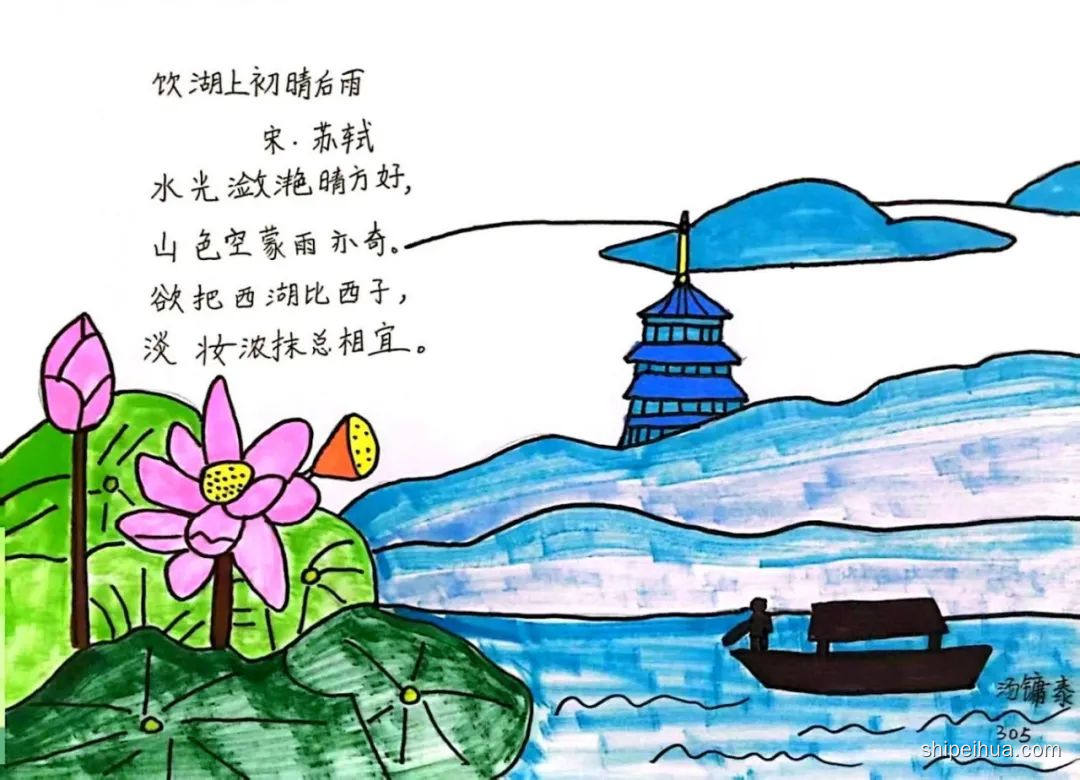 饮湖上初晴后雨
宋·苏轼
水光潋滟晴方好,
山色空蒙雨亦奇。
欲把西湖比西子,
淡妆浓抹总相宜。
汤镛泰
305
shipeihua.com